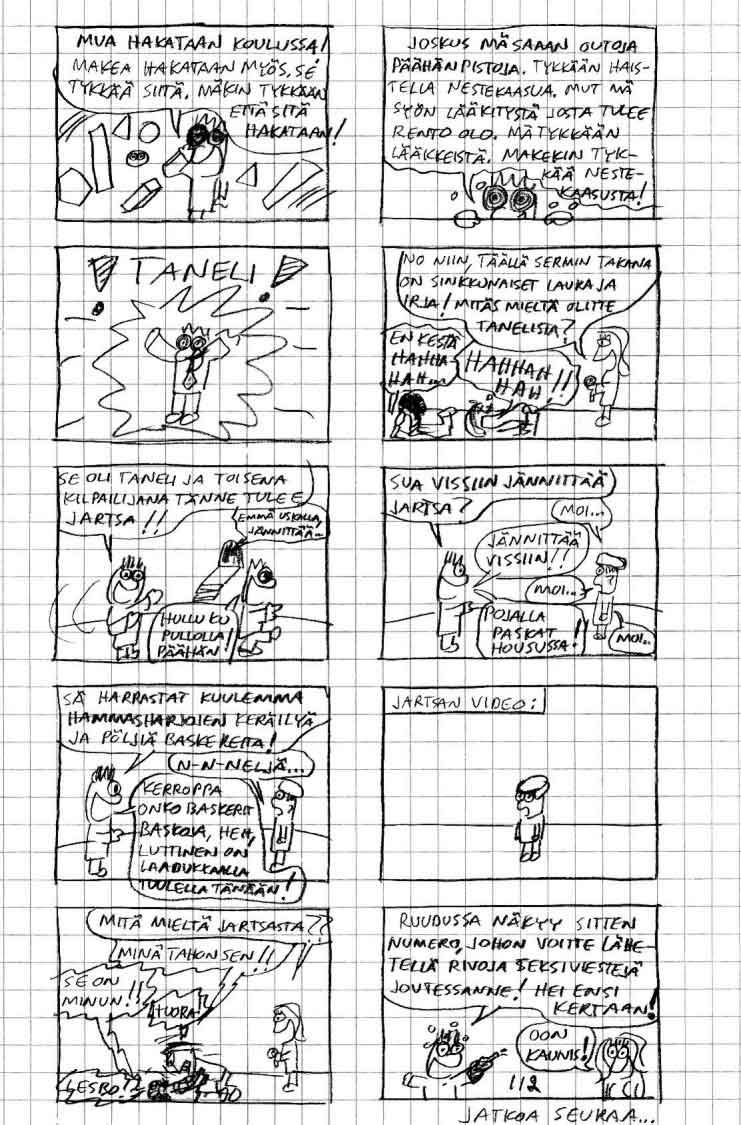 MUA HAKATAAN KOULUSSA!
MAKEA HAKATAAN MYÖS, SE
TYKKÄÄ SIITÄ. MÄKIN TYKKÄÄN
ETTÄ SITÄ
HAKATAAN!
JOSKUS MÄ SAAAN OUTOJA
PÄÄHÄNPISTOJA. TYKKÄÄN HAIS-
TELLA NESTEKAASUA. MUT MÄ
SYÖN LÄÄKITYSTÄ JOSTA TULEE
RENTO OLO. MÄ TYKKÄÄN
LÄÄKKEISTÄ. MAKEKIN TYK-
KÄÄ NESTE-
KAASUSTA!
! TANELI !
NO NIIN, TÄÄLLÄ SERMIN TAKANA
ON SINKKUNAISET LAURA JA
IRJA! MITÄS MIELTÄ OLITTE
TANELISTA?
EN KESTÄ
HAHHA-
HAH...
HAHHAH
HAH!!
SE OLI TANELI JA TOISENA
KILPAILIJANA TÄNNE TULEE
JARTSA!!
EMMÄ USKALLA,
JÄNNITTÄÄ...
HULLU KU
PULLOLLA
PÄÄHÄN!
SUA VISSIIN JÄNNITTÄÄ
JARTSA?
MOI...
JÄNNITTÄÄ
VISSIIN!!
MOI...
POJALLA
PASKAT
HOUSUSSA!
MOI...
SÄ HARRASTAT KUULEMMA
HAMMASHARJOJEN KERÄILYÄ
JA PÖLJIÄ BASKEREITA!
N-N-NELJÄ...
KERROPPA
ONKO BASKERIT
BASKOJA, HEH,
LUTTINEN ON
LAADUKKAALLA
TUULELLA TÄNÄÄN!
JARTSAN VIDEO:
MITÄ MIELTÄ JARTSASTA??
MINÄ TAHON SEN!!
SE ON
MINUN!!
HUORA!
LESBO!!
RUUDUSSA NÄKYY SITTEN
NUMERO, JOHON VOITTE LÄHE-
TELLÄ RIVOJA SEKSIVIESTEJÄ
JOUTESSANNE! HEI ENSI
KERTAAN!
OON
KAUNIS!
112
JATKOA SEURAA...